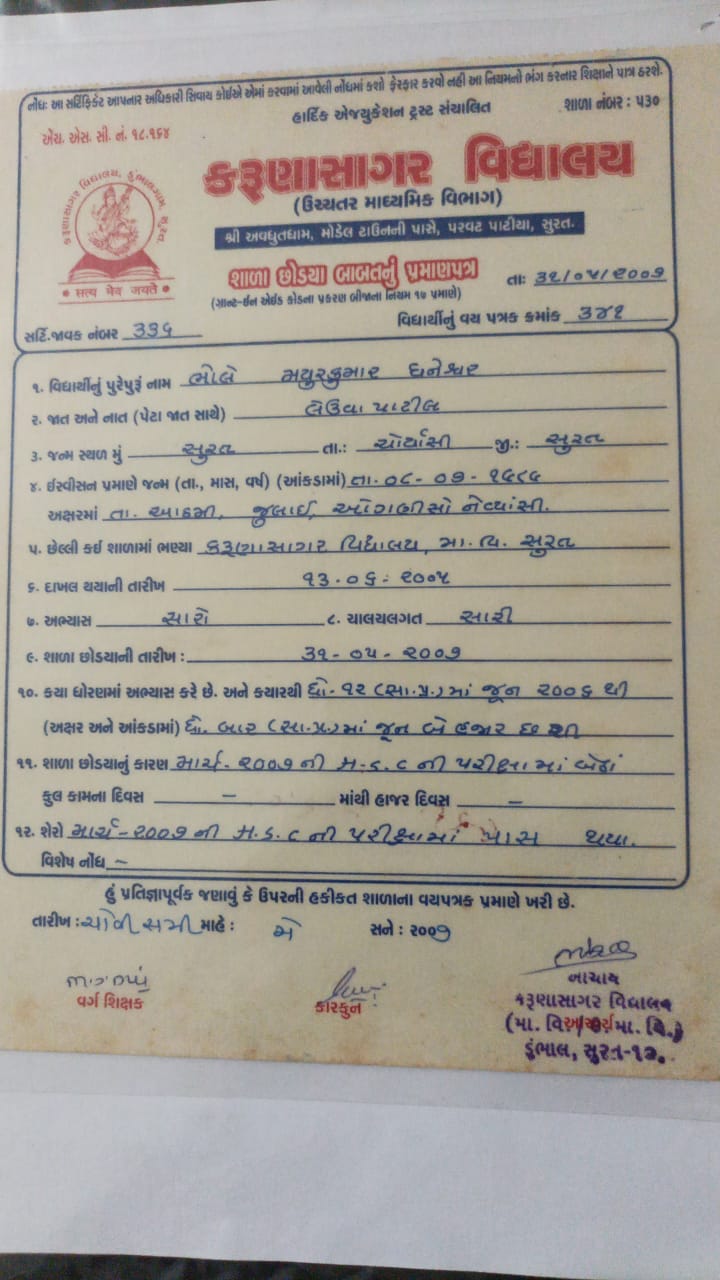 નોંધઃ આ સર્ટિફિકેટ આપનાર અધિકારી સિવાય કોઈએ એમાં કરવામાં આવેલી નોંધમાં કશો ફેરફાર કરવો નહી આ નિયમનો ભંગ કરનાર શિક્ષાને પાત્ર ઠરશે.
હાર્દિક એજ્યુકેશન ટ્રસ્ટ સંચાલિત
શાળા નંબર : ૫૩૦
એચ. એસ. સી. નં. ૧૮.૧૬૪
કરૂણાસાગર વિદ્યાલય
(ઉચ્ચતર માધ્યમિક વિભાગ)
કરૂણાસાગર વિદ્યાલય, ડુંભાલગામ, સુરત.
શ્રી અવધુતધામ, મોડેલ ટાઉનની પાસે, પરવટ પાટીયા, સુરત.
શાળા છોડયા બાબતનું પ્રમાણપત્ર
તાઃ ૩૧/૦૫/૨૦૦૭
સત્ય મેવ જયતે
(ગ્રાન્ટ-ઈન એઈડ કોડના પ્રકરણ બીજાના નિયમ ૧૭ પ્રમાણે)
વિદ્યાર્થીનું વય પત્રક ક્રમાંક ૩૪૧
સર્ટિ.જાવક નંબર ૩૩૬
૧. વિદ્યાર્થીનું પુરેપુરૂં નામ ભોલે મયુરકુમાર ધનેશ્વર
૨. જાત અને નાત (પેટા જાત સાથે) લેઉવા પાટીલ
૩. જન્મ સ્થળ મું સુરત તા.: ચોર્યાસી જી.: સુરત
૪. ઈસ્વીસન પ્રમાણે જન્મ (તા., માસ, વર્ષ) (આંકડામાં) તા. ૦૮-૦૭-૧૯૮૯
અક્ષરમાં તા. આઠમી, જુલાઈ, ઓગણીસો નેવ્યાંસી.
૫. છેલ્લી કઈ શાળામાં ભણ્યા કરૂણાસાગર વિદ્યાલય, મા. વિ. સુરત
૬. દાખલ થયાની તારીખ ૧૩.૦૬.૨૦૦૫
૭. અભ્યાસ સારો ૮. ચાલચલગત સારી
૯. શાળા છોડયાની તારીખ : ૩૧-૦૫-૨૦૦૭
૧૦. કયા ધોરણમાં અભ્યાસ કરે છે. અને કયારથી ધો.-૧૨ (સા.પ્ર.) માં જૂન ૨૦૦૬ થી
(અક્ષર અને આંકડામાં) ધો. બાર (સા.પ્ર.) માં જૂન બે હજાર છ થી
૧૧. શાળા છોડયાનું કારણ માર્ચ-૨૦૦૭ ની H.S.C ની પરીક્ષામાં બેઠાં
કુલ કામના દિવસ – માંથી હાજર દિવસ –
૧૨. શેરો માર્ચ-૨૦૦૭ ની H.S.C ની પરીક્ષામાં પાસ થયા.
વિશેષ નોંધ –
હું પ્રતિજ્ઞાપૂર્વક જણાવું કે ઉપરની હકીકત શાળાના વયપત્રક પ્રમાણે ખરી છે.
તારીખ : માહે : મે સને : ૨૦૦૭
વર્ગ શિક્ષક
કારકુન
આચાર્ય
કરૂણાસાગર વિદ્યાલય
(મા. વિ. મા. વિ.)
ડુંભાલ, સુરત-૧૦.